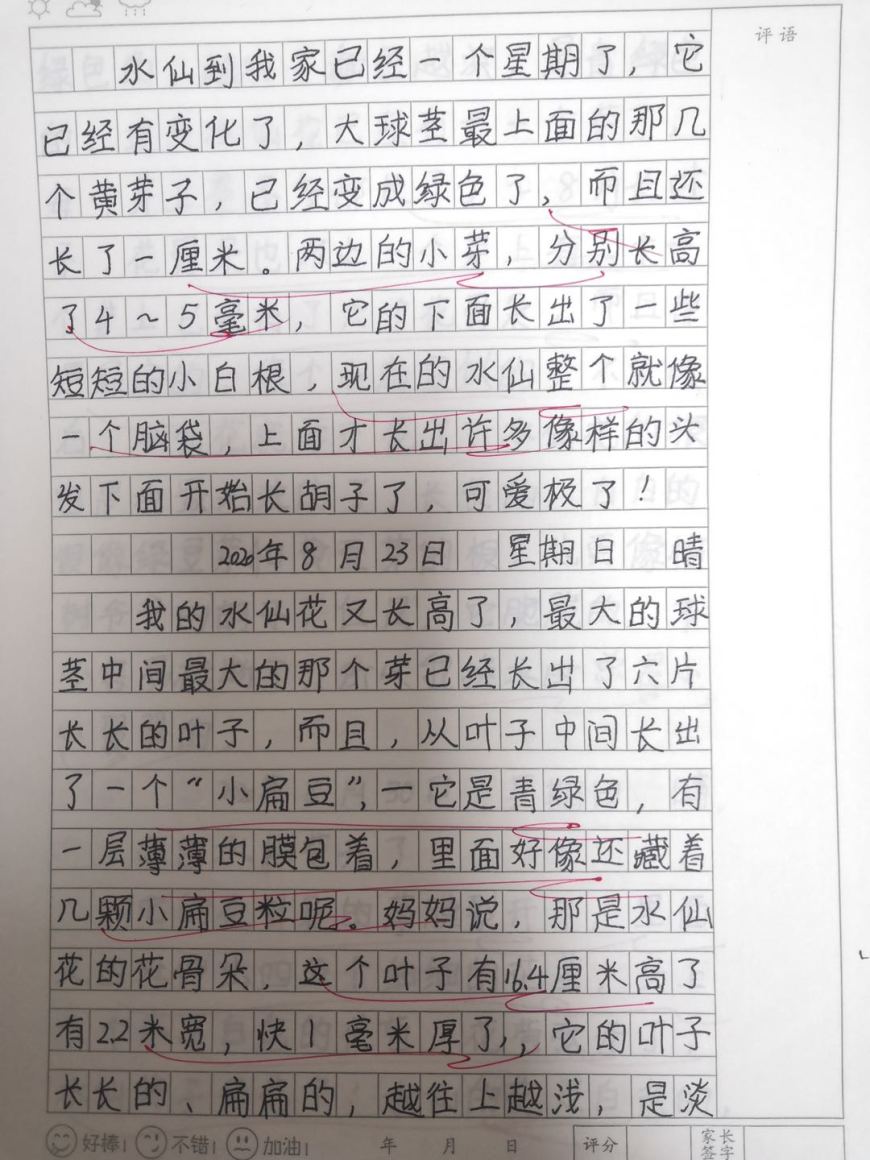 评语
水仙到我家已经一个星期了，它
已经有变化了，大球茎最上面的那几
个黄芽子，已经变成绿色了，而且还
长了一厘米。两边的小芽，分别长高
了4～5毫米，它的下面长出了一些
短短的小白根，现在的水仙整个就像
一个脑袋，上面才长出许多像样的头
发下面开始长胡子了，可爱极了！
2020年8月23日 星期日 晴
我的水仙花又长高了，最大的球
茎中间最大的那个芽已经长出了六片
长长的叶子，而且，从叶子中间长出
了一个“小扁豆”，一它是青绿色，有
一层薄薄的膜包着，里面好像还藏着
几颗小扁豆粒呢。妈妈说，那是水仙
花的花骨朵，这个叶子有16.4厘米高了
有2.2米宽，快1毫米厚了，，它的叶子
长长的、扁扁的，越往上越浅，是淡
好棒！ 不错！ 加油！ 年 月 日 评分 家长签字